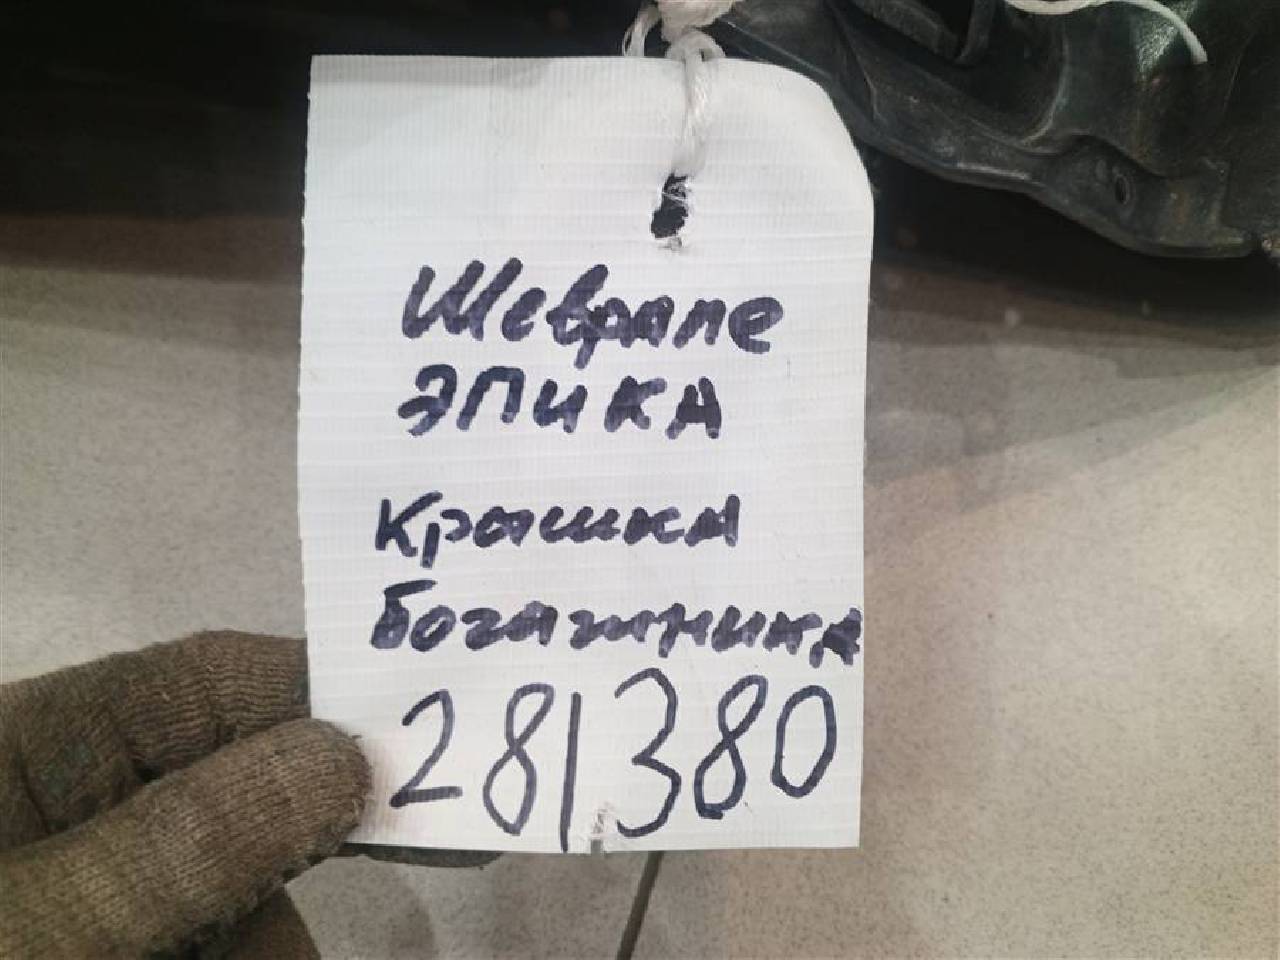 Шевроле
ЭПИКА
Крышка
Багажника
28/380